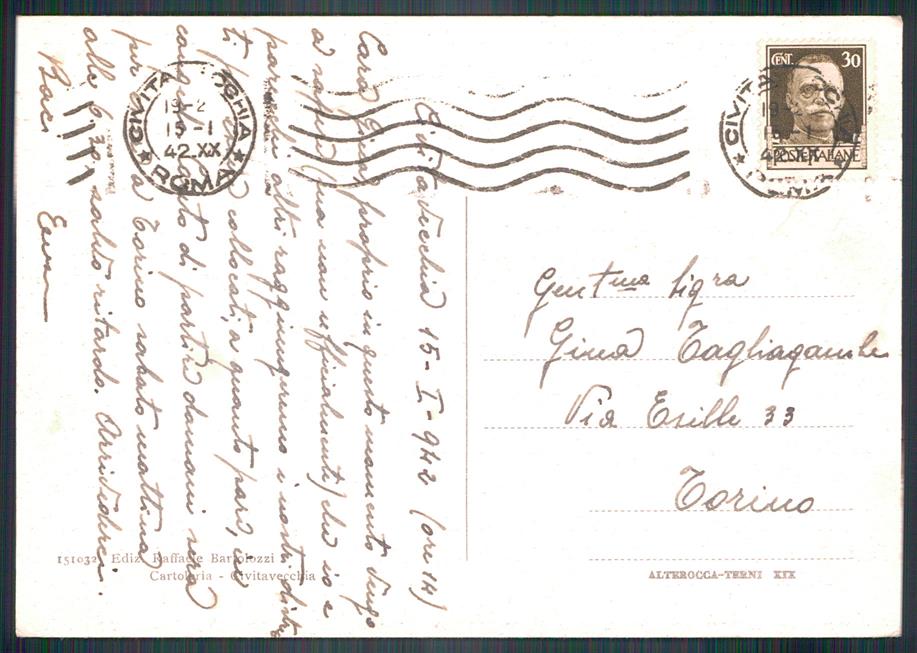 Civitavecchia 15-I-942 (ore 14)
Cara Gina, proprio in questo momento vengo
a sapere (ma non ufficialmente) che io e
parecchi altri raggiungeremo i nostri distret
ti. collocati, a quanto pare, in
congedo di partire domani sera
per a Torino sabato mattina
alle 6,20 salvo ritardo. Arrivederci.
Baci
CIVITAVECCHIA
ROMA
19-2
15-1
42.XX
CENT. 30
POSTE ITALIANE
Gent.ma Sig.ra
Gina Tagliagambe
Via Exille 33
Torino
151032 Ediz. Raffaele Bartolozzi
Cartoleria - Civitavecchia
ALTEROCCA-TERNI XIX